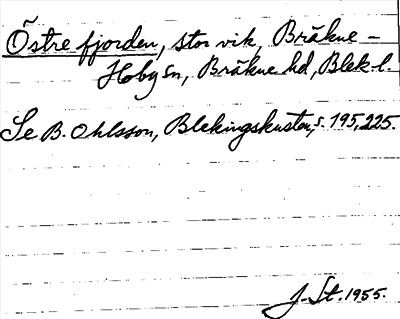 Östre fjorden, stor vik, Bräkne-
Hoby sn, Bräkne hd, Blek. l.
Se B. Ohlsson, Blekingskusten, s. 195, 225.
J. St. 1955.